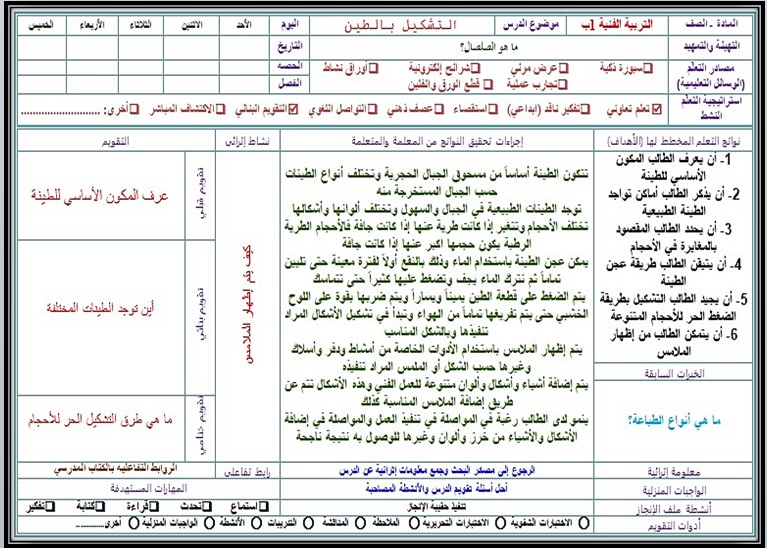 المادة ـ الصف التربية الفنية 1ب موضوع الدرس التشكيل بالطين اليوم الأحد الاثنين الثلاثاء الأربعاء الخميس
التهيئة والتمهيد ما هو الصلصال؟ التاريخ
مصادر التعلم سبورة ذكية عرض مرئي شرائح إلكترونية أوراق نشاط الحصه
(الوسائل التعليمية) تجارب عملية قطع الورق والفلين الفصل
استراتيجية التعلم النشط تعلم تعاوني تفكير ناقد (ابداعي) استقصاء عصف ذهني التواصل اللغوي التقويم البنائي الاكتشاف المباشر أخرى: ............................
نواتج التعلم المخطط لها (الأهداف) إجراءات تحقيق النواتج من المعلمة والمتعلمة نشاط إثرائي التقويم
1- أن يعرف الطالب المكون
الأساسي للطينة
2- أن يذكر الطالب أماكن تواجد
الطينة الطبيعية
3- أن يحدد الطالب المقصود
بالمغايرة في الأحجام
4- أن يتيقن الطالب طريقة عجن
الطينة
5- أن يجيد الطالب التشكيل بطريقة
الضغط الحر للأحجام المتنوعة
6- أن يتمكن الطالب من إظهار
الملامس
الخبرات السابقة
ما هي أنواع الطباعة؟
تتكون الطينة أساساً من مسحوق الجبال الحجرية وتختلف أنواع الطينات
حسب الجبال المستخرجة منه
توجد الطينات الطبيعية في الجبال والسهول وتختلف ألوانها وأشكالها
تختلف الأحجام وتتغير إذا كانت طرية عنها إذا كانت جافة فالأحجام الطرية
الرطبة يكون حجمها اكبر عنها إذا كانت جافة
يمكن عجن الطينة باستخدام الماء وذلك بالنقع أولاً لفترة معينة حتى تليين
تماماً ثم نترك الماء يجف ونضغط عليها كثيراً حتى تتماسك
يتم الضغط على قطعة الطين يميناً ويساراً ويتم ضربها بقوة على اللوح
الخشبي حتى يتم تفريغها تماماً من الهواء ونبدأ في تشكيل الأشكال المراد
تنفيذها وبالشكل المناسب
يتم إظهار الملامس باستخدام الأدوات الخاصة من أمشاط ودفر وأسلاك
وغيرها حسب الشكل أو الملمس المراد تنفيذه
يتم إضافة أشياء وأشكال وألوان متنوعة للعمل الفني وهذه الأشكال تتم عن
طريق إضافة الملامس المناسبة كذلك
ينمو لدى الطالب رغبة في المواصلة في تنفيذ العمل والمواصلة في إضافة
الأشكال والأشياء من خرز وألوان وغيرها للوصول به نتيجة ناجحة
كيف يتم إظهار الملامس
تقويم قبلي عرف المكون الأساسي للطينة
تقويم بنائي أين توجد الطينات المختلفة
تقويم ختامي ما هي طرق التشكيل الحر للأحجام
معلومة إثرائية الرجوع إلى مصادر البحث وجمع معلومات إثرائية عن الدرس رابط تفاعلي الروابط التفاعلية بالكتاب المدرسي
الواجبات المنزلية أحل أسئلة تقويم الدرس والأنشطة المصاحبة المهارات المستهدفة
أنشطة ملف الإنجاز تنفيذ حقيبة الإنجاز استماع تحدث قراءة كتابة تفكير
أدوات التقويم الاختبارات الشفوية الاختبارات التحريرية الملاحظة المناقشة التدريبات الأنشطة الواجبات المنزلية أخرى............